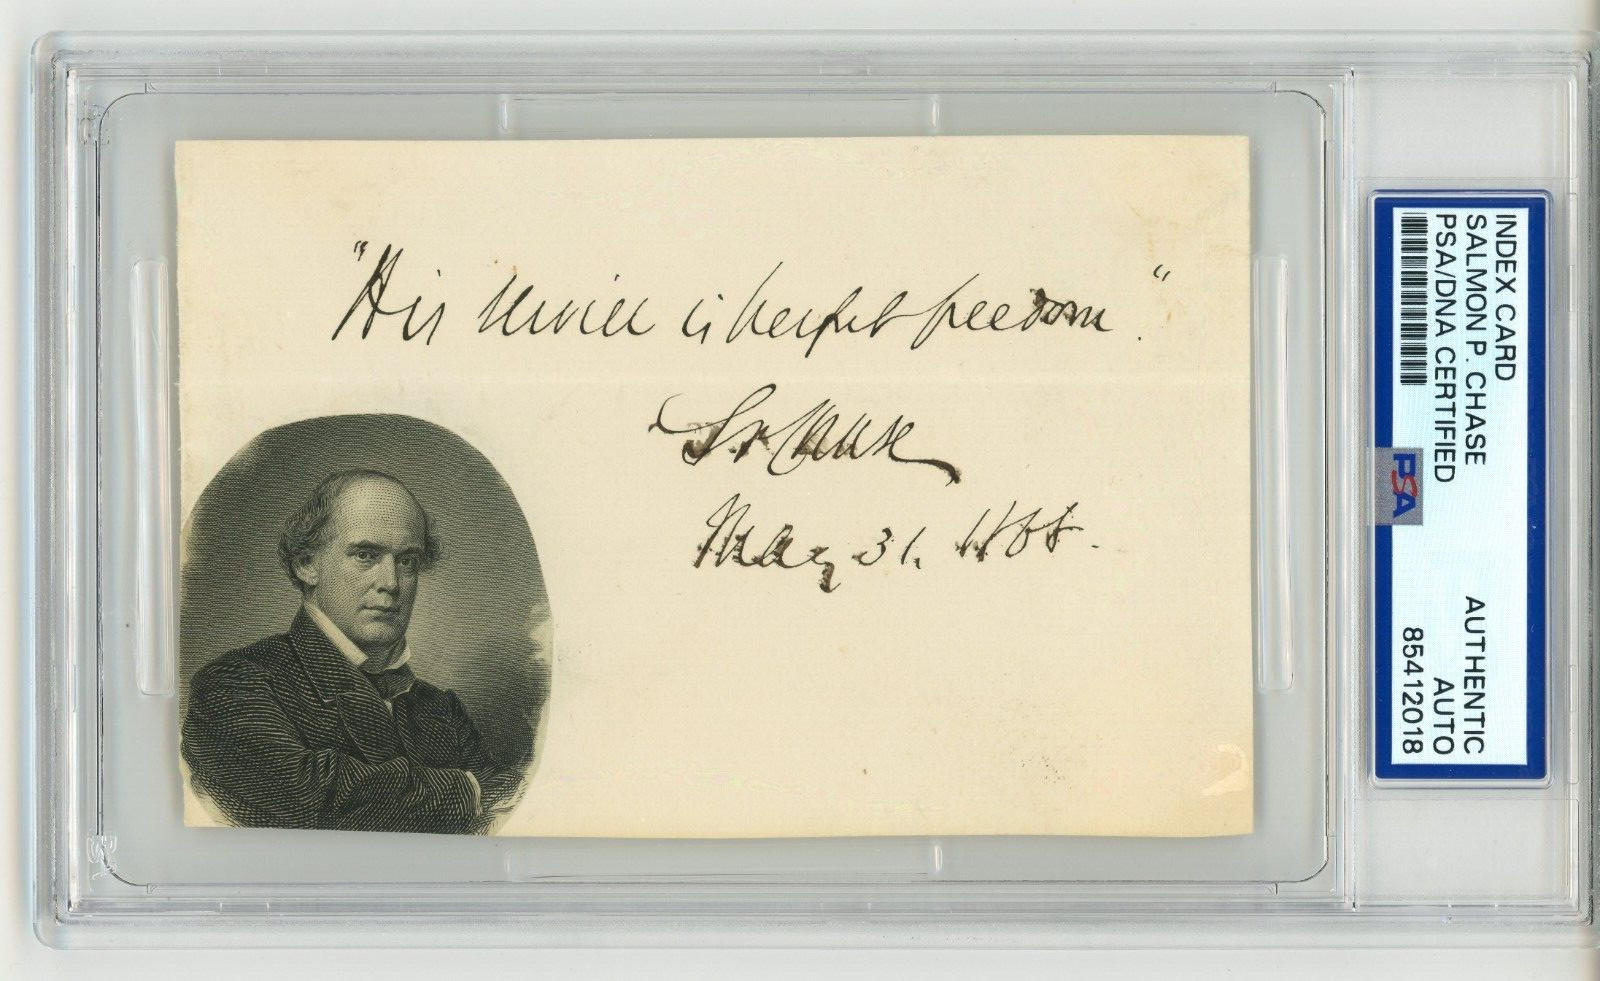 "His service is perfect freedom."
S P Chase
May 31. 1868.
INDEX CARD
SALMON P. CHASE
PSA/DNA CERTIFIED
AUTHENTIC
AUTO
85412018
PSA